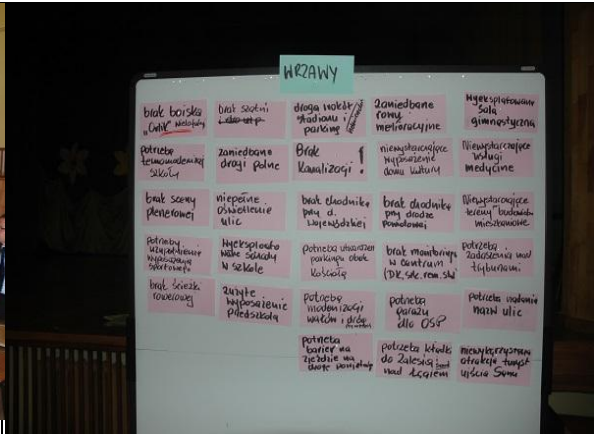 WRZAWY
brak boiska
"Orlik"
brak szatni
droga wokół
stadionu i
parking
zaniedbane
rowy
melioracyjne
Wyeksploatowana
sala
gimnastyczna
potrzeba
termomodernizacji
szkoły
zaniedbane
drogi polne
Brak
Kanalizacji !
niewystarczające
wyposażenie
domu kultury
Niewystarczające
usługi
medyczne
brak sceny
plenerowej
niepełne
oświetlenie
ulic
brak chodnika
przy d.
wojewódzkiej
brak chodnika
przy drodze
powiatowej
Niewystarczające
tereny budowl.
mieszkaniowe
potrzeby
uzupełnienie
wyposażenia
sportowego
Wyeksploato
wane schody
w szkole
potrzeba utworzen
parkingu obok
Kościoła
brak monitoringu
w centrum
potrzeba
zadaszenia nad
trybunami
brak ścieżki
rowerowej
zużyte
wyposażenie
przedszkola
potrzeba
modernizacji
wałów i dróg
potrzeba
garażu
dla OSP
potrzeba nadania
nazw ulic
potrzeba
barier na
zjeździe na
drogę
potrzeba kładki
do Zalesia
nad Łęgiem
niewykorzystana
atrakcja turyst
ujścia Sanu